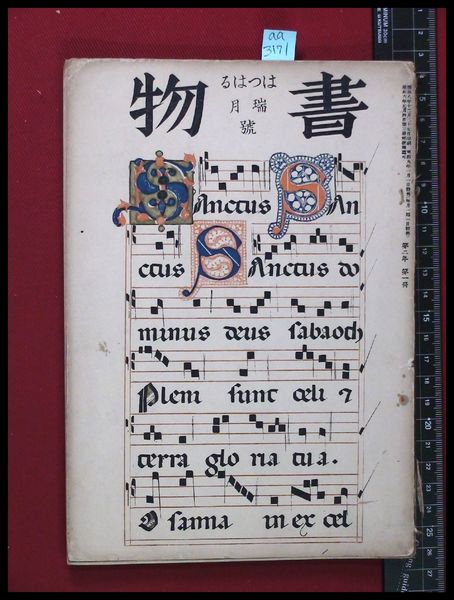 aa
3171
書物
はつはる
瑞月
號
第二年 第一冊
SAnctus SAn
ctus SAnctus do
minus deus sabaoth
Pleni sunt celi ⁊
terra glo ria tua.
O sanna in ex cel
10
15
20
25
26
27